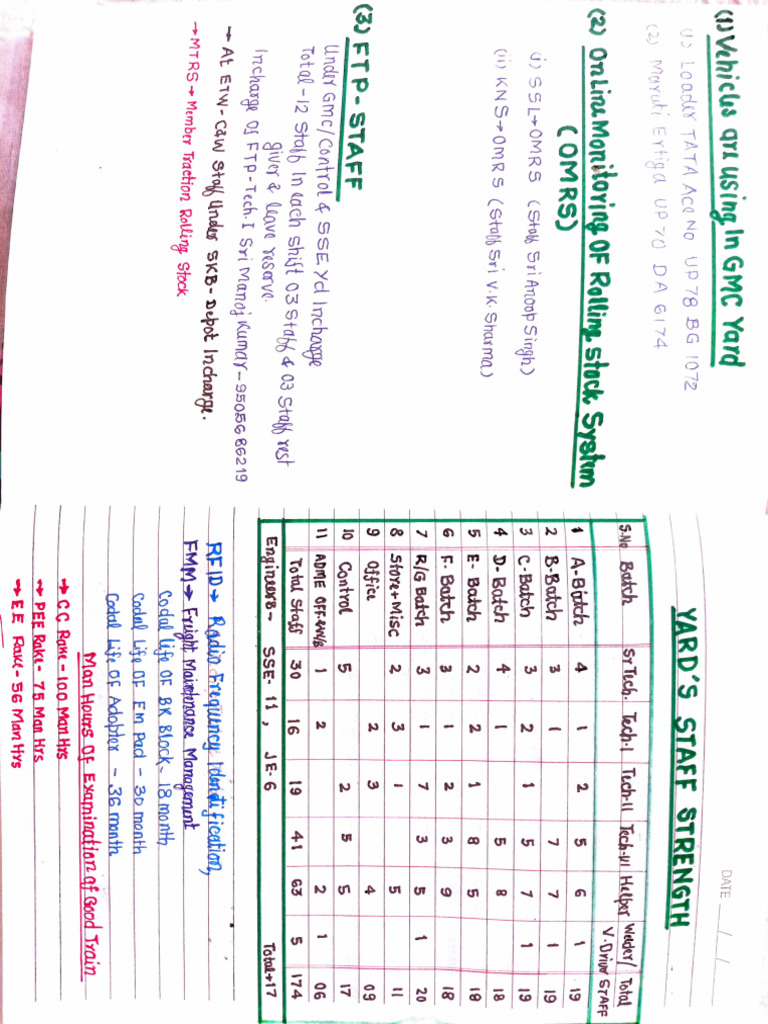 (1) Vehicles are using In GMC Yard
(1) Loader TATA Ace No UP 78 BG 1072
(2) Maruti Ertiga UP 70 DA 6174
(2) OnLine Monitoring OF Rolling stock System
(OMRS)
(i) SSL→OMRS (Staff Sri Anoop Singh)
(ii) KNS→OMRS (Staff Sri V.K. Sharma)
(3) FTP-STAFF
Under Gmc/Control & SSE Yd Incharge
Total-12 Staff In each shift 03 Staff & 03 Staff rest
giver & leave reserve.
Incharge Of FTP-Tech.I Sri Manoj Kumar-9505686219
→ At ETW-C&W Staff Under SKB-Depot Incharge.
→MTRS→ Member Traction Rolling Stock
DATE / /
YARD'S STAFF STRENGTH
S.No Batch Sr Tech. Tech-I Tech-II Tech-III Helper Welder/V.Driver Total STAFF
1 A-Batch 4 1 2 5 6 1 19
2 B-Batch 3 1 7 7 1 19
3 C-Batch 3 2 1 5 7 1 19
4 D-Batch 4 1 5 8 18
5 E-Batch 2 2 1 8 5 18
6 F-Batch 3 1 2 3 9 18
7 R/G Batch 3 1 7 3 5 1 20
8 Store+Misc 2 3 1 5 11
9 Office 2 3 4 09
10 Control 5 2 5 5 17
11 ADME OFF. 1 2 2 1 06
Total Staff 30 16 19 41 63 5 174
Engineers- SSE-11, JE-6 Total→17
RFID→ Radio Frequency Identification,
FMM→ Freight Maintenance Management
Codal life OF BK Block-18 month
Codal Life OF Em Pad - 30 month
Codal Life OF Adopter - 36 month
Man Hours Of Examination of Good Train
→ C C Rake - 100 Man Hrs
→ PEE Rake- 75 Man Hrs.
→ E.E Rake - 56 Man Hrs